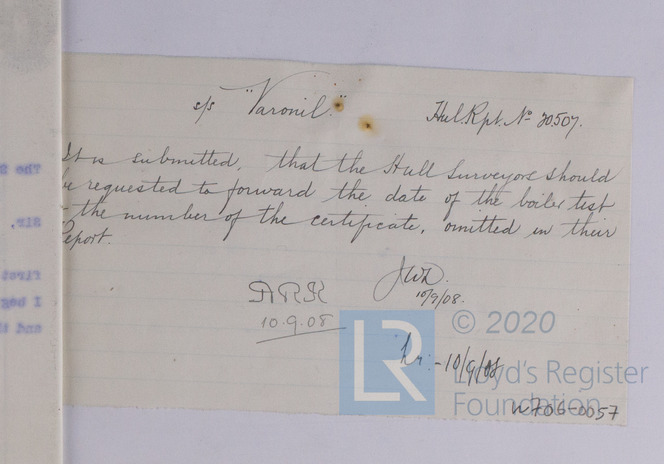 s/s "Varonil."
Hul. Rpt. No 20507.
It is submitted, that the Hull Surveyors should
be requested to forward the date of the boiler test
the number of the certificate, omitted in their
Report.
JWD.
10/9/08.
ARK
10.9.08
-10/9/08
© 2020
LR
Lloyd's Register
Foundation
W706-0057
The
Sir,
first
I beg
and th